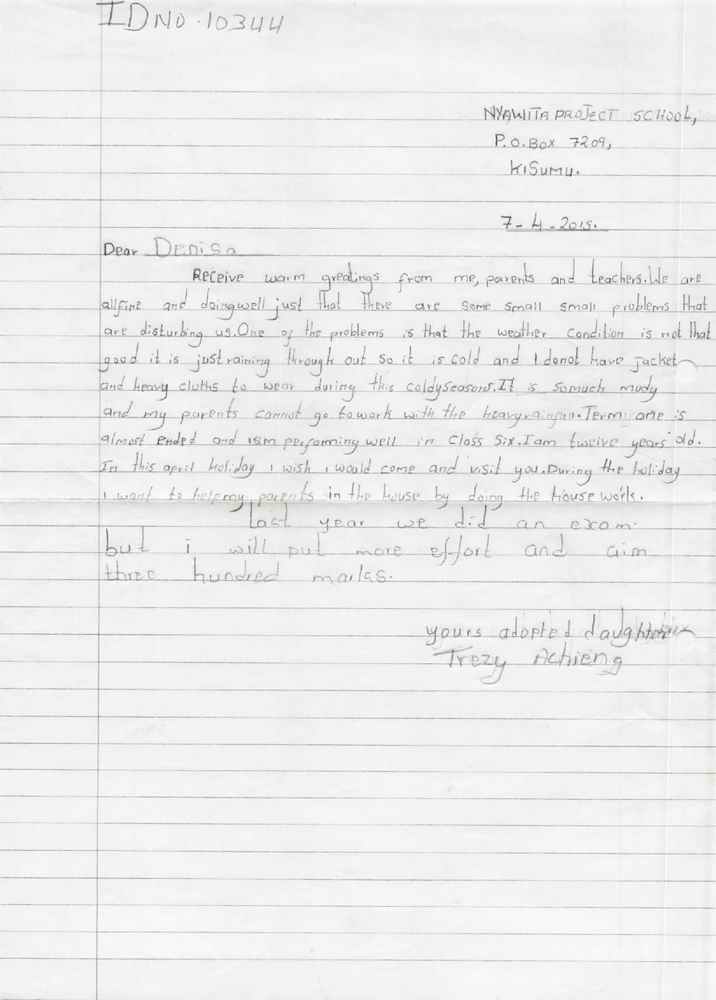 ID NO. 10344
NYAWITA PROJECT SCHOOL,
P.O.BOX 7209,
KISUMU.
7-4-2015.
Dear Denisa
Receive warm greetings from me, parents and teachers. We are
all fine and doing well just that there are some small small problems that
are disturbing us. One of the problems is that the weather condition is not that
good it is just raining through out so it is cold and I donot have jacket
and heavy cloths to wear during this coldy seasons. It is somuch mudy
and my parents cannot go to work with the heavy rainfall. Term one is
almost ended and iam performing well in class six. I am twelve years old.
In this april holiday i wish i would come and visit you. During the holiday
i want to help my parents in the house by doing the house works.
last year we did an exam
but i will put more effort and aim
three hundred marks.
yours adopted daughter
Trezy Achieng